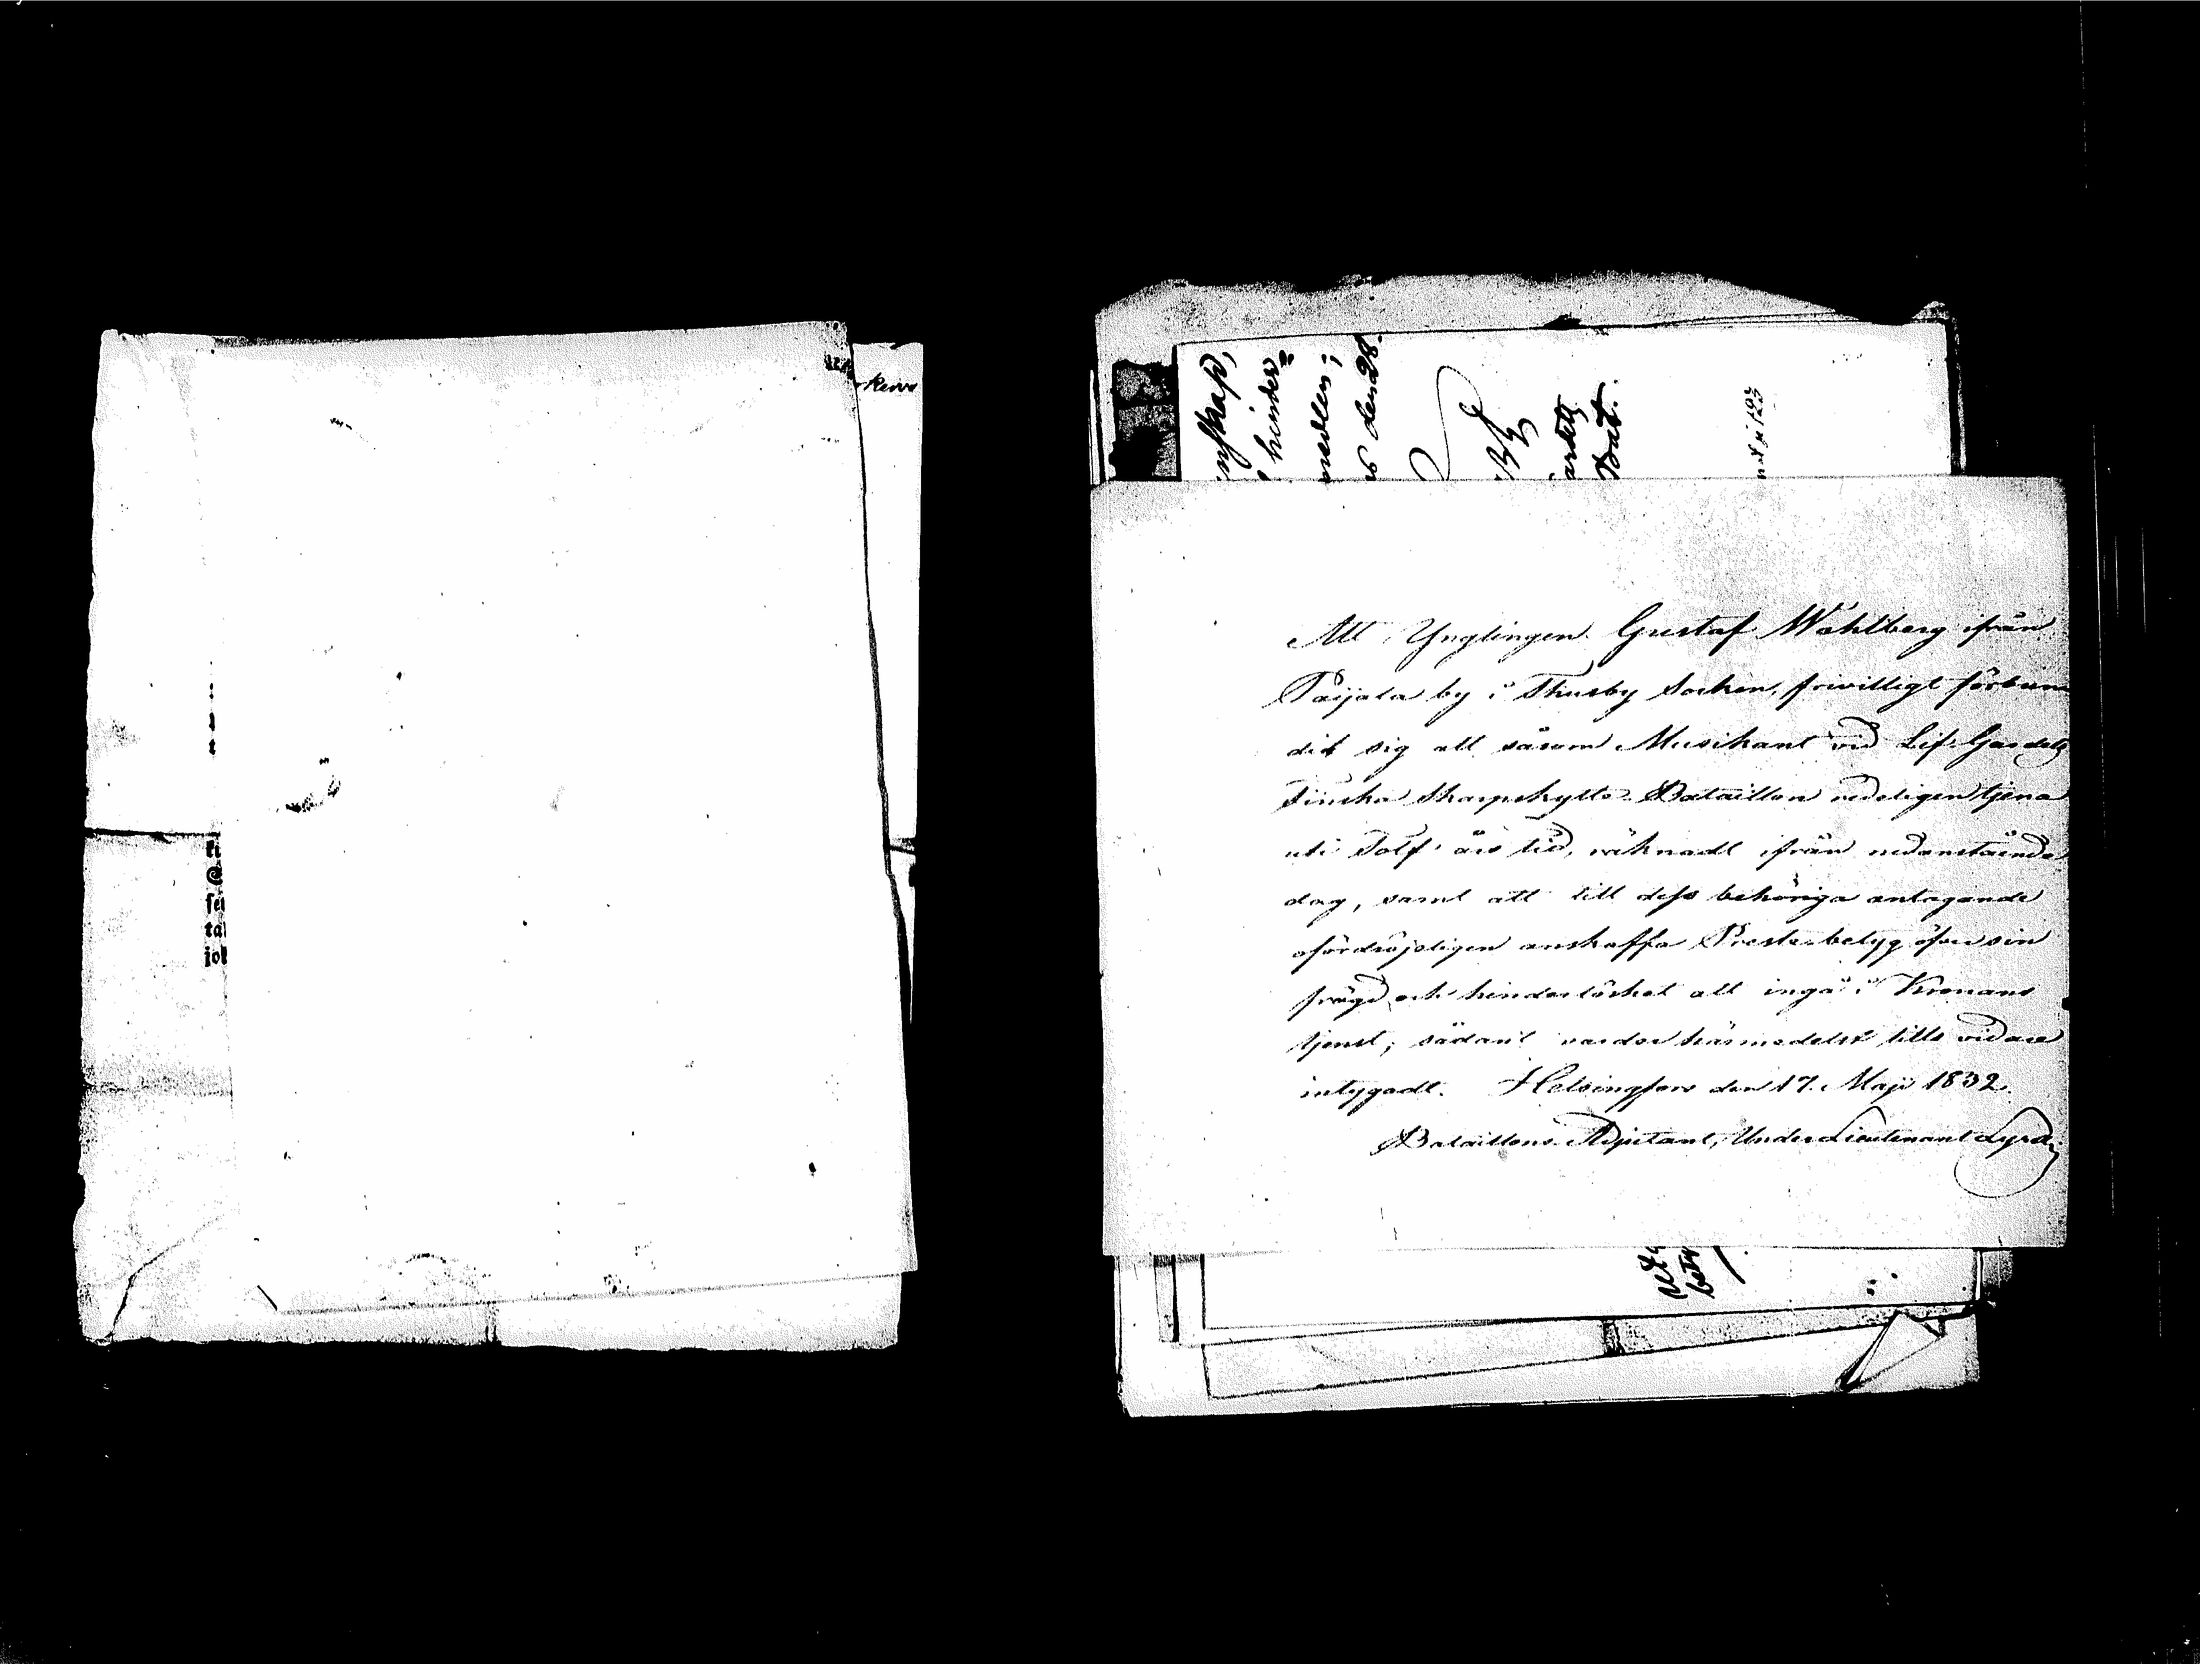 Kerro
ki
sei
jol
hinder=
den 28.
ardets
Bat.
Att Ynglingen Gustaf Wåhlberg ifrån
Paijala by i Thusby Socken, frivilligt förbun-
dit sig att såsom Musikant vid Lif-Gardets
Finska Skarpskytte-Bataillon redeligen tjena
uti Tolf års tid, räknadt ifrån nedanstående
dag, samt att till dess behöriga antagande
ofördröjeligen anskaffa Prestebetyg öfver sin
frägd och hinderlöshet att ingå i Kronans
tjenst; sådant varder härmedelst till vidare
intygadt. Helsingfors den 17. Maji 1832.
Bataillons Adjutant, Under Lieutenant